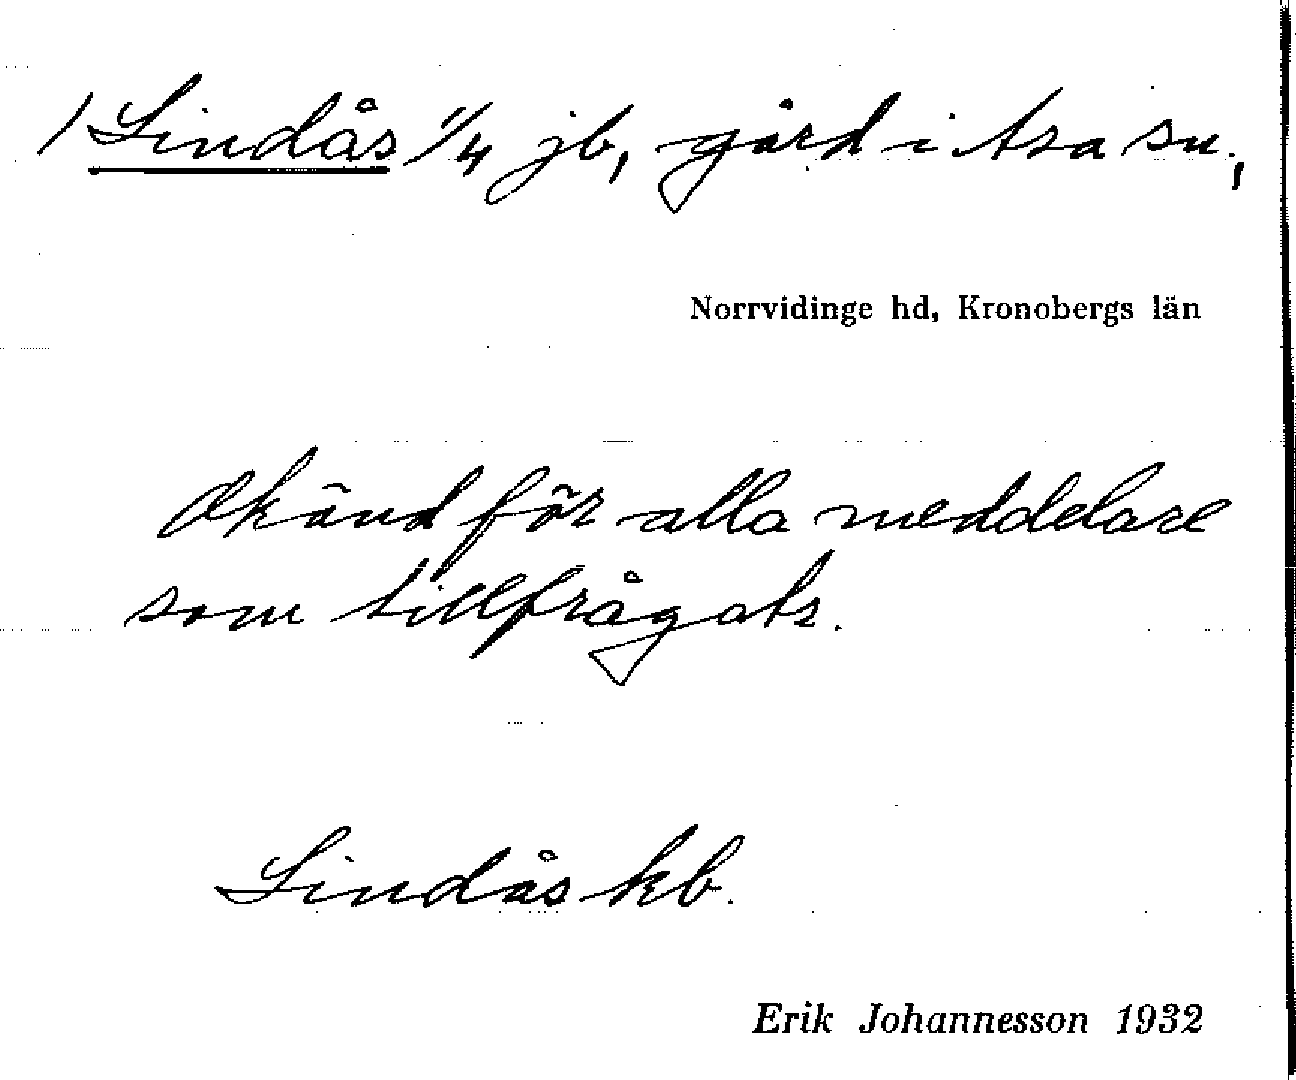 / Lindås 1/4 jb, gård i Asa sn.,
Norrvidinge hd, Kronobergs län
Okänd för alla meddelare
som tillfrågats.
Lindås kb.
Erik Johannesson 1932